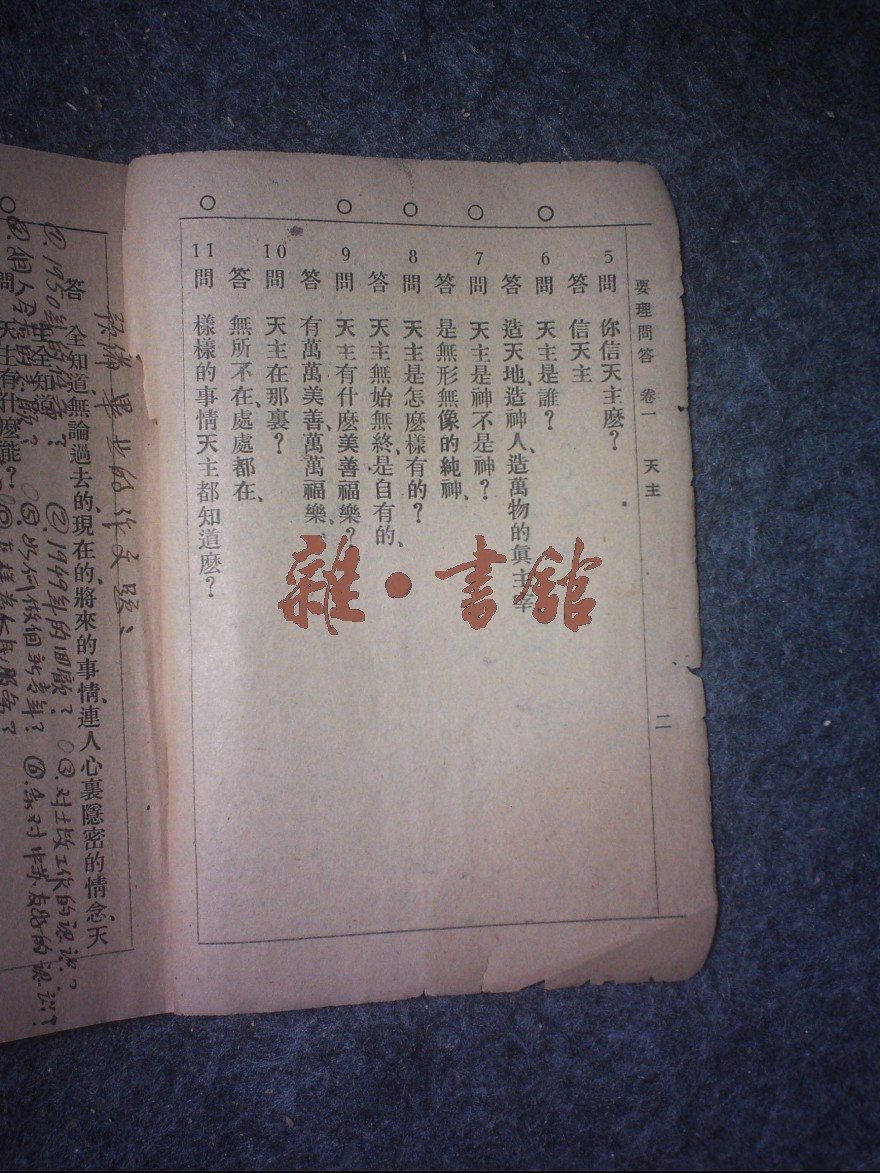 要理問答 卷一 天主 二
5 問 你信天主麽？
答 信天主
6 問 天主是誰？
答 造天地、造神人、造萬物的眞主宰
7 問 天主是神不是神？
答 是無形無像的純神、
8 問 天主是怎麽樣有的？
答 天主無始無終、是自有的、
9 問 天主有什麽美善福樂？
答 有萬萬美善、萬萬福樂、
10 問 天主在那裏？
答 無所不在、處處都在、
11 問 樣樣的事情天主都知道麽？
雜·書館
預備畢业的作文題：
答 全知道、無論過去的、現在的、將來的事情、連人心裏隱密的情念、天
①. 1950年的
②1949年的回顧？
③.对土改工作的認識？
⑤.如何做個新青年？
⑥.你对中苏友好的認識？
問 天主有什麽能？